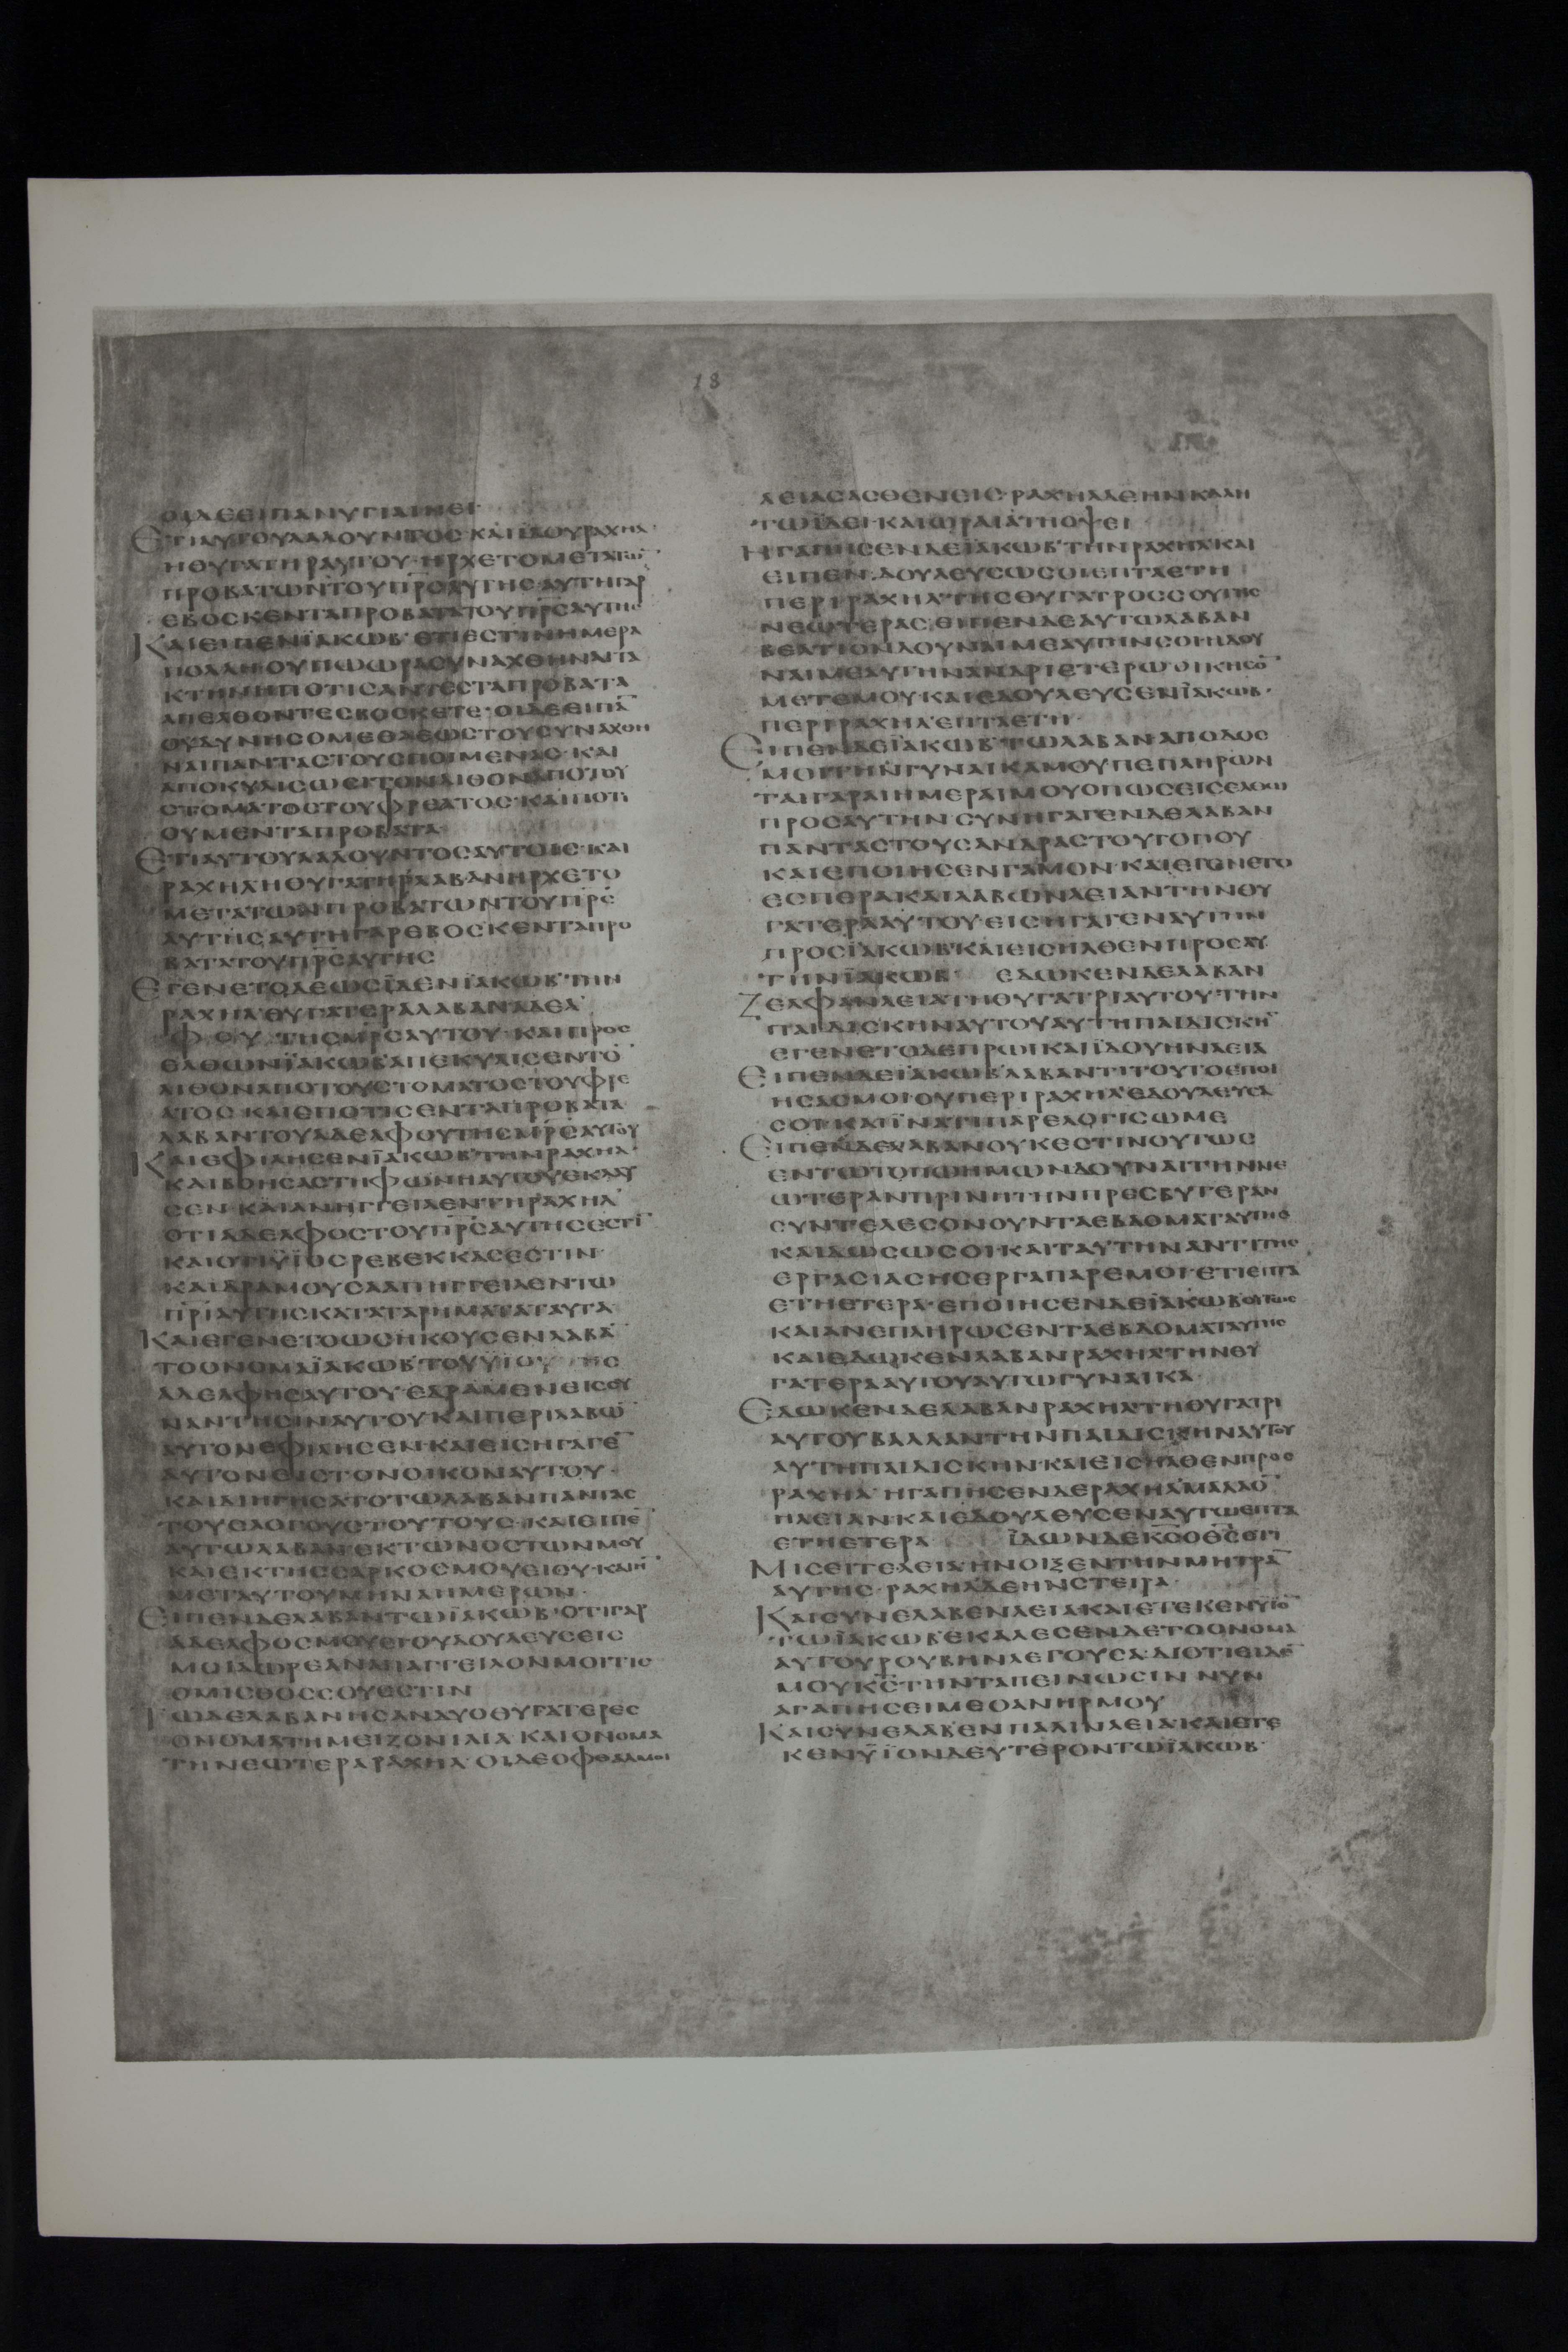 18
ΟΙΔΕΕΙΠΑΝΥΓΙΑΙΝΕΙ
ΕΤΙΑΥΤΟΥΛΑΛΟΥΝΤΟΣ ΚΑΙΪΔΟΥΡΑΧΗΛ
ΗΘΥΓΑΤΗΡΑΥΤΟΥ ΗΡΧΕΤΟΜΕΤΑΤΩ̅
ΠΡΟΒΑΤΩΝΤΟΥΠΡ̅Ο̅ΑΥΤΗΣ ΑΥΤΗΓΑΡ
ΕΒΟΣΚΕΝΤΑΠΡΟΒΑΤΑΤΟΥΠΡ̅Σ̅ΑΥΤΗΣ
ΚΑΙΕΙΠΕΝΪΑΚΩΒ ΕΤΙΕΣΤΙΝΗΜΕΡΑ
ΠΟΛΛΗΟΥΠΩΩΡΑΣΥΝΑΧΘΗΝΑΙΤΑ
ΚΤΗΝΗΠΟΤΙΣΑΝΤΕΣΤΑΠΡΟΒΑΤΑ
ΑΠΕΛΘΟΝΤΕΣΒΟΣΚΕΤΕ ΟΙΔΕΕΙΠΑ̅
ΟΥΔΥΝΗΣΟΜΕΘΑΕΩΣΤΟΥΣΥΝΑΧΘΗ
ΝΑΙΠΑΝΤΑΣΤΟΥΣΠΟΙΜΕΝΑΣ ΚΑΙ
ΑΠΟΚΥΛΙΣΩΣΙΤΟΝΛΙΘΟΝΑΠΟΤΟΥ
ΣΤΟΜΑΤΟΣΤΟΥΦΡΕΑΤΟΣ ΚΑΙΠΟΤΙ
ΟΥΜΕΝΤΑΠΡΟΒΑΤΑ
ΕΤΙΑΥΤΟΥΛΑΛΟΥΝΤΟΣΑΥΤΟΙΣ ΚΑΙ
ΡΑΧΗΛΗΘΥΓΑΤΗΡΛΑΒΑΝΗΡΧΕΤΟ
ΜΕΤΑΤΩΝΠΡΟΒΑΤΩΝΤΟΥΠΡ̅Σ̅
ΑΥΤΗΣΑΥΤΗΓΑΡΕΒΟΣΚΕΝΤΑΠΡΟ
ΒΑΤΑΤΟΥΠΡ̅Σ̅ΑΥΤΗΣ
ΕΓΕΝΕΤΟΔΕΩΣΪΔΕΝΪΑΚΩΒ ΤΗΝ
ΡΑΧΗΛΘΥΓΑΤΕΡΑΛΑΒΑΝΑΔΕΛ
ΦΟΥ ΤΗΣΜΡ̅Σ̅ΑΥΤΟΥ ΚΑΙΠΡΟΣ
ΕΛΘΩΝΪΑΚΩΒΑΠΕΚΥΛΙΣΕΝΤΟ̅
ΛΙΘΟΝΑΠΟΤΟΥΣΤΟΜΑΤΟΣΤΟΥΦΡΕ
ΑΤΟΣ ΚΑΙΕΠΟΤΙΣΕΝΤΑΠΡΟΒΑΤΑ
ΛΑΒΑΝΤΟΥΑΔΕΛΦΟΥΤΗΣΜΡ̅Σ̅ΑΥΤΟΥ
ΚΑΙΕΦΙΛΗΣΕΝΪΑΚΩΒ ΤΗΝΡΑΧΗΛ
ΚΑΙΒΟΗΣΑΣΤΗΦΩΝΗΑΥΤΟΥΕΚΛΑΥ
ΣΕΝ ΚΑΙΑΝΗΓΓΕΙΛΕΝΤΗΡΑΧΗΛ
ΟΤΙΑΔΕΛΦΟΣΤΟΥΠΡ̅Σ̅ΑΥΤΗΣΕΣΤΙ̅
ΚΑΙΟΤΙΫΙΟΣΡΕΒΕΚΚΑΣΕΣΤΙΝ
ΚΑΙΔΡΑΜΟΥΣΑΑΠΗΓΓΕΙΛΕΝΤΩ
ΠΡ̅Ι̅ΑΥΤΗΣΚΑΤΑΤΑΡΗΜΑΤΑΤΑΥΤΑ
ΚΑΙΕΓΕΝΕΤΟΩΣΗΚΟΥΣΕΝΛΑΒΑ̅
ΤΟΟΝΟΜΑΪΑΚΩΒ ΤΟΥΫΙΟΥ ΗΣ
ΑΔΕΛΦΗΣΑΥΤΟΥ ΕΔΡΑΜΕΝΕΙΣΣΥ
ΝΑΝΤΗΣΙΝΑΥΤΟΥΚΑΙΠΕΡΙΛΑΒΩ̅
ΑΥΤΟΝΕΦΙΛΗΣΕΝ ΚΑΙΕΙΣΗΓΑΓΕ̅
ΑΥΤΟΝΕΙΣΤΟΝΟΙΚΟΝΑΥΤΟΥ
ΚΑΙΔΙΗΓΗΣΑΤΟΤΩΛΑΒΑΝΠΑΝΤΑΣ
ΤΟΥΣΛΟΓΟΥΣΤΟΥΤΟΥΣ ΚΑΙΕΙΠΕ̅
ΑΥΤΩΛΑΒΑΝ ΕΚΤΩΝΟΣΤΩΝΜΟΥ
ΚΑΙΕΚΤΗΣΣΑΡΚΟΣΜΟΥΕΙΣΥ ΚΑΙΗ̅
ΜΕΤΑΥΤΟΥΜΗΝΑΗΜΕΡΩΝ
ΕΙΠΕΝΔΕΛΑΒΑΝΤΩΪΑΚΩΒ ΟΤΙΓΑΡ
ΑΔΕΛΦΟΣΜΟΥΕΙΟΥΔΟΥΛΕΥΣΕΙΣ
ΜΟΙΔΩΡΕΑΝΑΠΑΓΓΕΙΛΟΝΜΟΙΤΙΣ
ΟΜΙΣΘΟΣΣΟΥΕΣΤΙΝ
ΤΩΔΕΛΑΒΑΝΗΣΑΝΔΥΟΘΥΓΑΤΕΡΕΣ
ΟΝΟΜΑΤΗΜΕΙΖΟΝΙΛΙΑ ΚΑΙΟΝΟΜΑ
ΤΗΝΕΩΤΕΡΑΡΑΧΗΛ ΟΙΔΕΟΦΘΑΛΜΟΙ
ΛΕΙΑΣΑΣΘΕΝΕΙΣ ΡΑΧΗΛΔΕΗΝΚΑΛΗ
ΤΩΪΔΕΙ ΚΑΙΩΡΑΙΑΤΗΟΨΕΙ
ΗΓΑΠΗΣΕΝΔΕΪΑΚΩΒ ΤΗΝΡΑΧΗΛ ΚΑΙ
ΕΙΠΕΝ ΔΟΥΛΕΥΣΩΣΟΙΕΠΤΑΕΤΗ
ΠΕΡΙΡΑΧΗΛ ΤΗΣΘΥΓΑΤΡΟΣΣΟΥΤΗΣ
ΝΕΩΤΕΡΑΣ ΕΙΠΕΝΔΕΑΥΤΩΛΑΒΑΝ
ΒΕΛΤΙΟΝΔΟΥΝΑΙΜΕΑΥΤΗΝΣΟΙΗΔΟΥ
ΝΑΙΜΕΑΥΤΗΝΑΝΔΡΙΕΤΕΡΩ ΟΙΚΗΣΟ̅
ΜΕΤΕΜΟΥ ΚΑΙΕΔΟΥΛΕΥΣΕΝΪΑΚΩΒ
ΠΕΡΙΡΑΧΗΛ ΕΠΤΑΕΤΗ
ΕΙΠΕΝΔΕΪΑΚΩΒ ΤΩΛΑΒΑΝΑΠΟΔΟΣ
ΜΟΙΤΗΝΓΥΝΑΙΚΑΜΟΥΠΕΠΛΗΡΩΝ
ΤΑΙΓΑΡΑΙΗΜΕΡΑΙΜΟΥΟΠΩΣΕΙΣΕΛΘΩ
ΠΡΟΣΑΥΤΗΝ ΣΥΝΗΓΑΓΕΝΔΕΛΑΒΑΝ
ΠΑΝΤΑΣΤΟΥΣΑΝΔΡΑΣΤΟΥΤΟΠΟΥ
ΚΑΙΕΠΟΙΗΣΕΝΓΑΜΟΝ ΚΑΙΕΓΕΝΕΤΟ
ΕΣΠΕΡΑΚΑΙΛΑΒΩΝΛΕΙΑΝΤΗΝΘΥ
ΓΑΤΕΡΑΑΥΤΟΥ ΕΙΣΗΓΑΓΕΝΑΥΤΗΝ
ΠΡΟΣΪΑΚΩΒ ΚΑΙΕΙΣΗΛΘΕΝΠΡΟΣΑΥ
ΤΗΝΪΑΚΩΒ ΕΔΩΚΕΝΔΕΛΑΒΑΝ
ΖΕΛΦΑΝΛΕΙΑΤΗΘΥΓΑΤΡΙΑΥΤΟΥ ΤΗΝ
ΠΑΙΔΙΣΚΗΝΑΥΤΟΥΑΥΤΗΠΑΙΔΙΣΚΗ̅
ΕΓΕΝΕΤΟΔΕΠΡΩΙΚΑΙΪΔΟΥΗΝΛΕΙΑ
ΕΙΠΕΝΔΕΪΑΚΩΒ ΛΑΒΑΝΤΙΤΟΥΤΟΕΠΟΙ
ΗΣΑΣΜΟΙΟΥΠΕΡΙΡΑΧΗΛ ΕΔΟΥΛΕΥΣΑ
ΣΟΙ ΚΑΙΪΝΑΤΙΠΑΡΕΛΟΓΙΣΩΜΕ
ΕΙΠΕΝΔΕΛΑΒΑΝΟΥΚΕΣΤΙΝΟΥΤΩΣ
ΕΝΤΩΤΟΠΩΗΜΩΝΔΟΥΝΑΙΤΗΝΝΕ
ΩΤΕΡΑΝΠΡΙΝΗΤΗΝΠΡΕΣΒΥΤΕΡΑΝ
ΣΥΝΤΕΛΕΣΟΝΟΥΝΤΑΕΒΔΟΜΑΤΑΥΤΗΣ
ΚΑΙΔΩΣΩΣΟΙΚΑΙΤΑΥΤΗΝΑΝΤΙΤΗΣ
ΕΡΓΑΣΙΑΣΗΣΕΡΓΑΠΑΡΕΜΟΙ ΕΤΙΕΠΤΑ
ΕΤΗΕΤΕΡΑ ΕΠΟΙΗΣΕΝΔΕΪΑΚΩΒ ΟΥΤΩΣ
ΚΑΙΑΝΕΠΛΗΡΩΣΕΝΤΑΕΒΔΟΜΑΤΑΥΤΗΣ
ΚΑΙΕΔΩΚΕΝΛΑΒΑΝΡΑΧΗΛ ΤΗΝΘΥ
ΓΑΤΕΡΑΑΥΤΟΥΑΥΤΩΓΥΝΑΙΚΑ
ΕΔΩΚΕΝΔΕΛΑΒΑΝΡΑΧΗΛ ΤΗΘΥΓΑΤΡΙ
ΑΥΤΟΥΒΑΛΛΑΝΤΗΝΠΑΙΔΙΣΚΗΝΑΥΤΟΥ
ΑΥΤΗΠΑΙΔΙΣΚΗΝ ΚΑΙΕΙΣΗΛΘΕΝΠΡΟΣ
ΡΑΧΗΛ ΗΓΑΠΗΣΕΝΔΕΡΑΧΗΛΜΑΛΛΟ̅
ΗΛΕΙΑΝ ΚΑΙΕΔΟΥΛΕΥΣΕΝΑΥΤΩΕΠΤΑ
ΕΤΗΕΤΕΡΑ ΪΔΩΝΔΕΚ̅Σ̅ΟΘ̅Σ̅ΟΤΙ
ΜΙΣΕΙΤΕΛΕΙΑ ΗΝΟΙΞΕΝΤΗΝΜΗΤΡΑ̅
ΑΥΤΗΣ ΡΑΧΗΛΔΕΗΝΣΤΕΙΡΑ
ΚΑΙΣΥΝΕΛΑΒΕΝΛΕΙΑΚΑΙΕΤΕΚΕΝΥΪΟ̅
ΤΩΪΑΚΩΒ ΕΚΑΛΕΣΕΝΔΕΤΟΟΝΟΜΑ
ΑΥΤΟΥΡΟΥΒΗΝΛΕΓΟΥΣΑ ΔΙΟΤΙΕΙΔΕ̅
ΜΟΥΚ̅Σ̅ΤΗΝΤΑΠΕΙΝΩΣΙΝ ΝΥΝ
ΑΓΑΠΗΣΕΙΜΕΟΑΝΗΡΜΟΥ
ΚΑΙΣΥΝΕΛΑΒΕΝΠΑΛΙΝΛΕΙΑ ΚΑΙΕΤΕ
ΚΕΝΫΪΟΝΔΕΥΤΕΡΟΝΤΩΪΑΚΩΒ